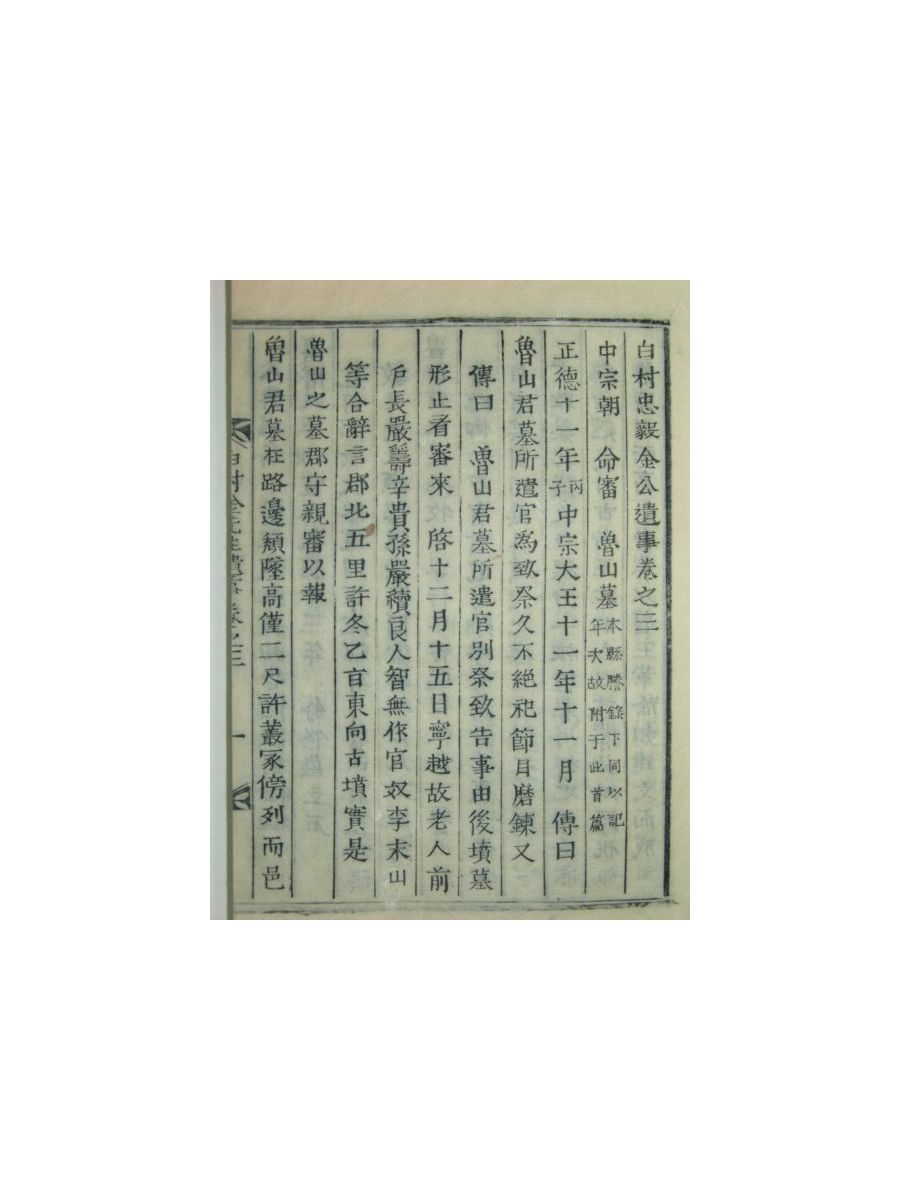 白村忠毅金公遺事卷之三
中宗朝 命審 魯山墓 本縣謄錄下同以記年次故附于此首篇
正德十一年丙子中宗大王十一年十一月 傳曰
魯山君墓所遣官爲致祭久不絶祀節目磨鍊又
傳曰 魯山君墓所遣官別祭致告事由後墳墓
形止看審來 啓十二月十五日寧越故老人前
戶長嚴籌辛貴孫嚴續良人智無作官奴李末山
等合辭言郡北五里許冬乙旨東向古墳實是
魯山之墓郡守親審以報
魯山君墓在路邊頹墜高僅二尺許叢冢傍列而邑
白村金先生遺事 卷之三 一